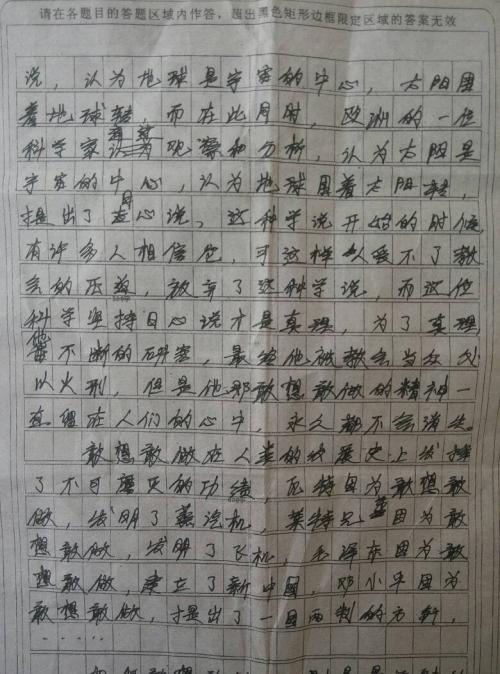 请在各题目的答题区域内作答，超出黑色矩形边框限定区域的答案无效
说，认为地球是宇宙的中心，太阳围
着地球转，而在此月时，欧洲的一位
科学家观察和分析，认为太阳是
宇宙的中心，认为地球围着太阳转，
提出了日心说。这种学说开始的时候
有许多人相信他，可这样人受不了教
会的压迫，放弃了这种学说，而这位
科学坚持日心说才是真理，为了真理，
他不断的研究，最终他被教会当众处
以火刑，但是他那敢想敢做的精神一
直留在人们的心中，永久都不会消失。
敢想敢做在人类的发展史上发挥
了不可磨灭的功绩，瓦特因为敢想敢
做，发明了蒸汽机，莱特兄弟因为敢
想敢做，发明了飞机，毛泽东因为敢
想敢做，建立了新中国，邓小平因为
敢想敢做，提出了一国两制的方针，
……